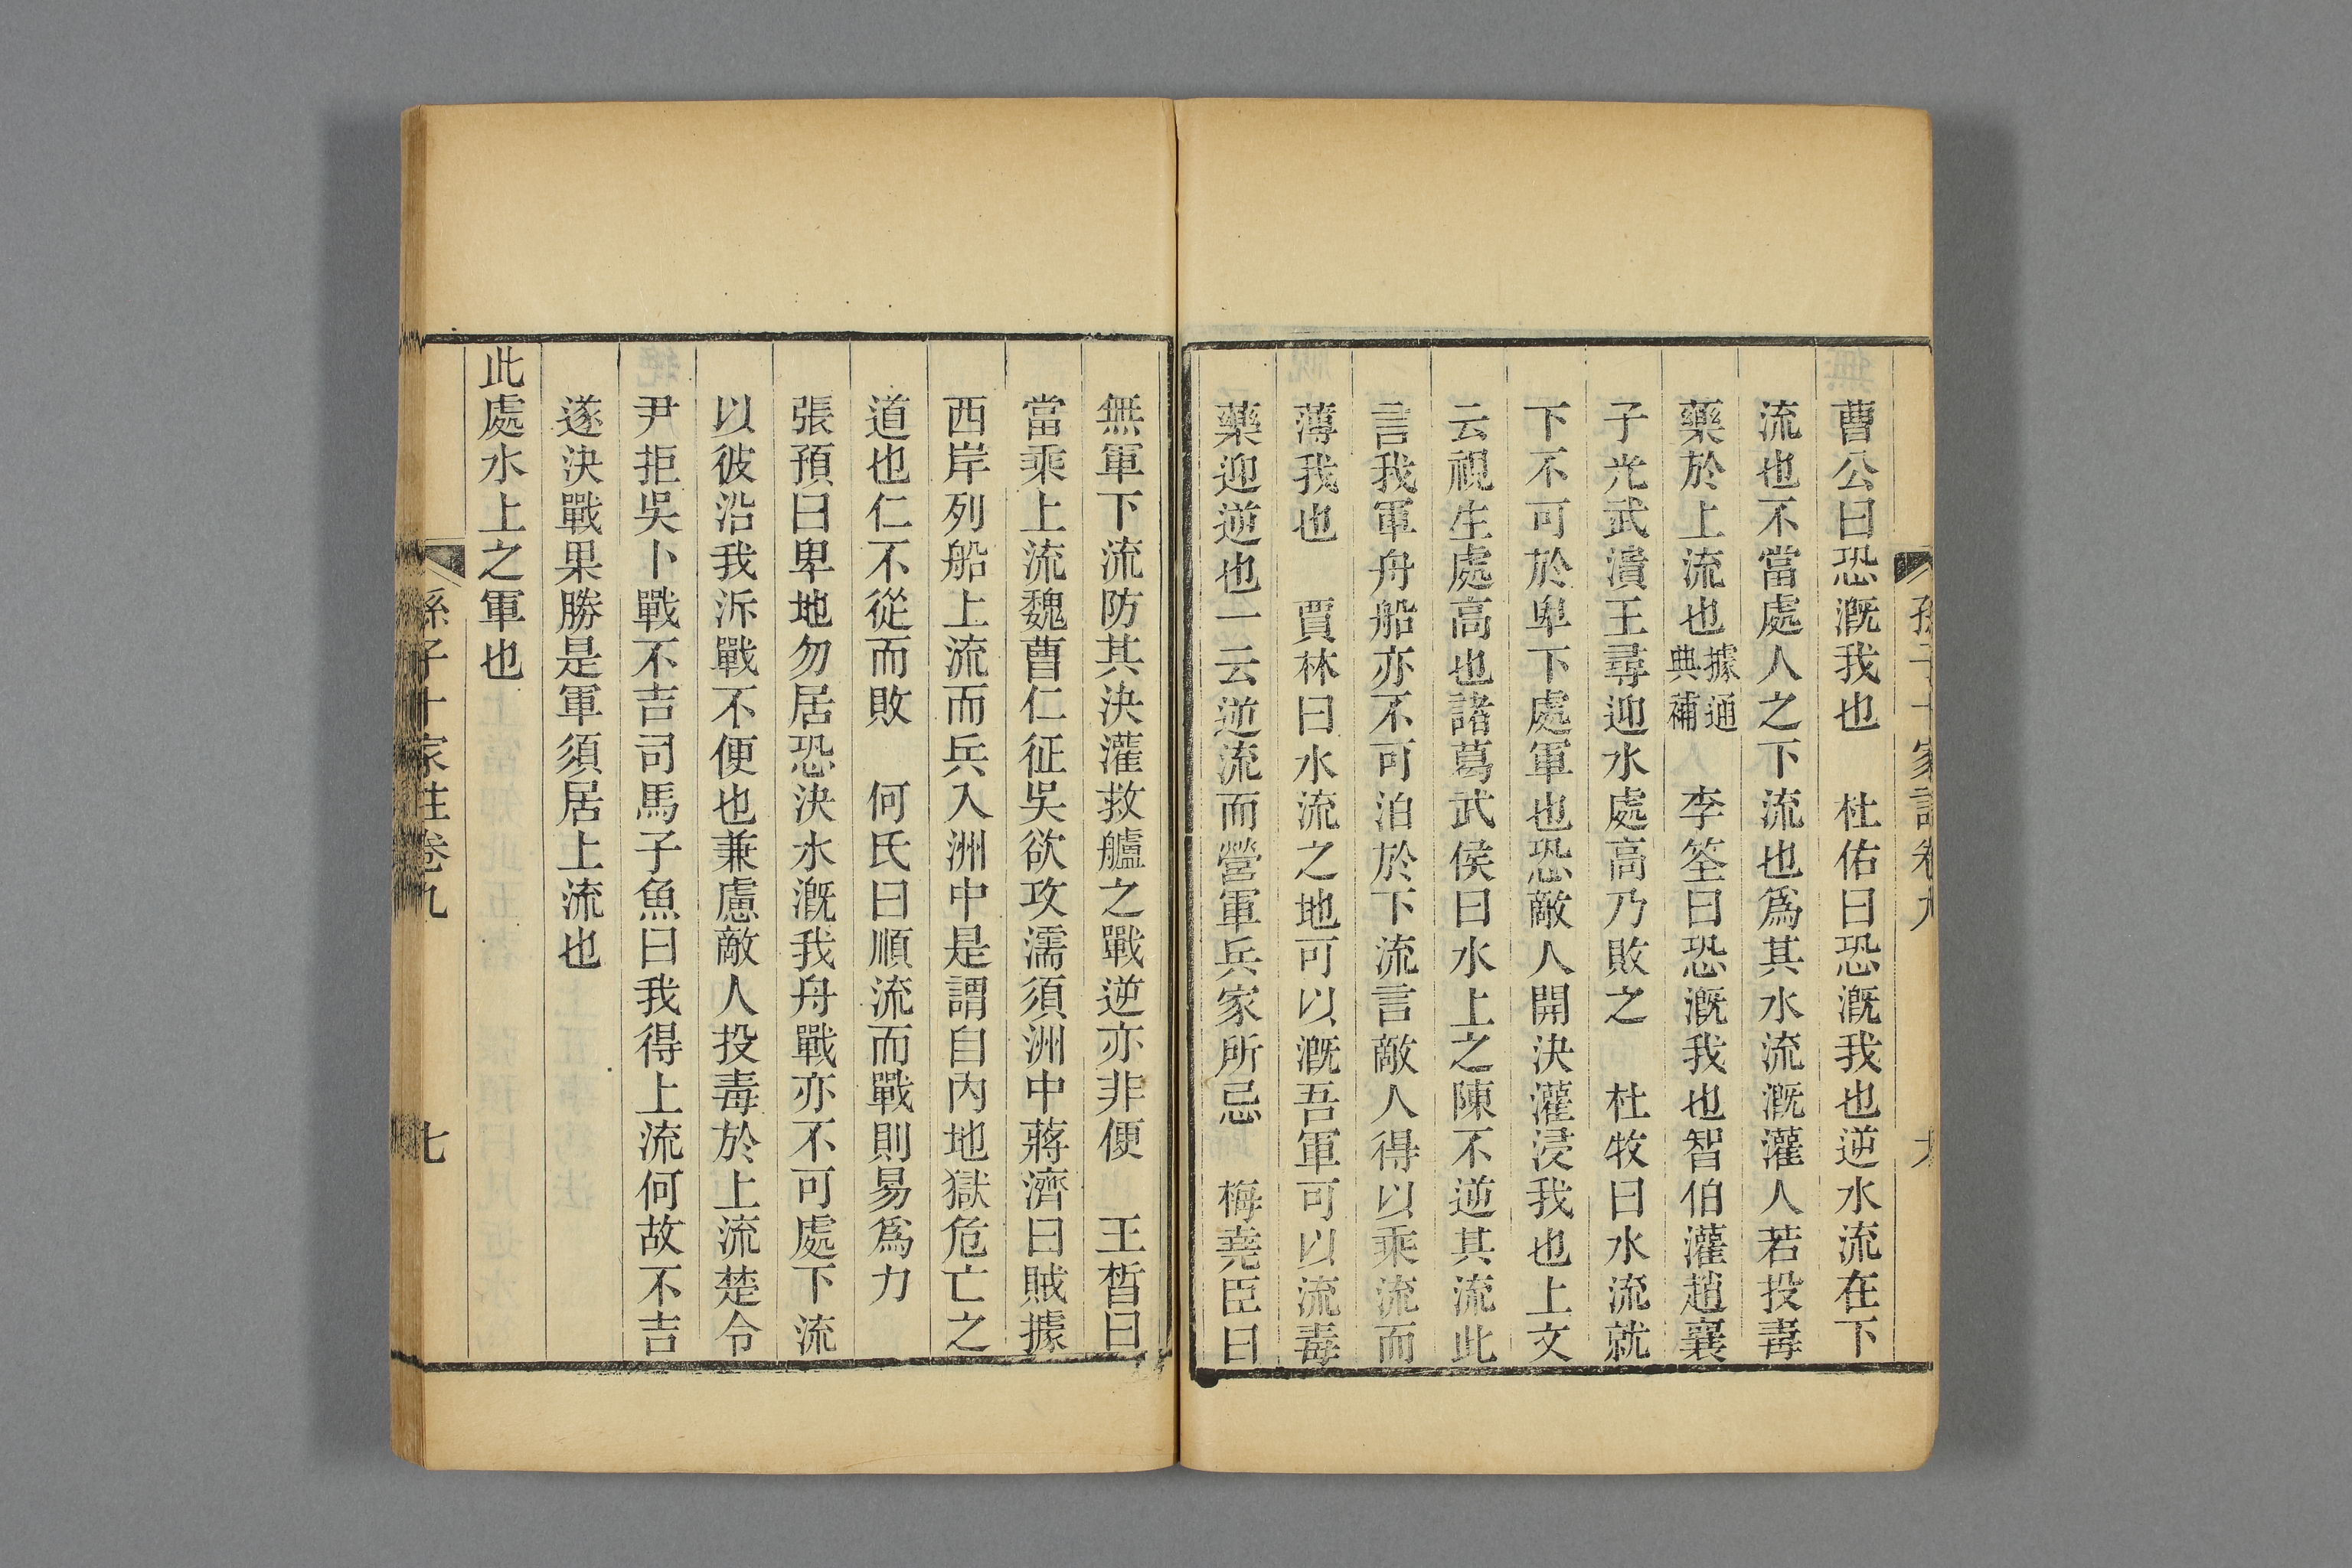 曹公曰恐漑我也　杜佑曰恐漑我也逆水流在下
流也不當處人之下流也爲其水流漑灌人若投毒
藥於上流也據通典補　李筌曰恐漑我也智伯灌趙襄
子光武潰王尋迎水處高乃敗之　杜牧曰水流就
下不可於卑下處軍也恐敵人開決灌浸我也上文
云視生處高也諸葛武侯曰水上之陳不逆其流此
言我軍舟船亦不可泊於下流言敵人得以乘流而
薄我也　賈林曰水流之地可以漑吾軍可以流毒
藥迎逆也一云逆流而營軍兵家所忌　梅堯臣曰
無軍下流防其決灌救艫之戰逆亦非便　王晳曰
當乘上流魏曹仁征吳欲攻濡須洲中蔣濟曰賊據
西岸列船上流而兵入洲中是謂自內地獄危亡之
道也仁不從而敗　何氏曰順流而戰則易爲力
張預曰卑地勿居恐決水漑我舟戰亦不可處下流
以彼沿我泝戰不便也兼慮敵人投毒於上流楚令
尹拒吳卜戰不吉司馬子魚曰我得上流何故不吉
遂決戰果勝是軍須居上流也
此處水上之軍也
孫子十家註卷九　七